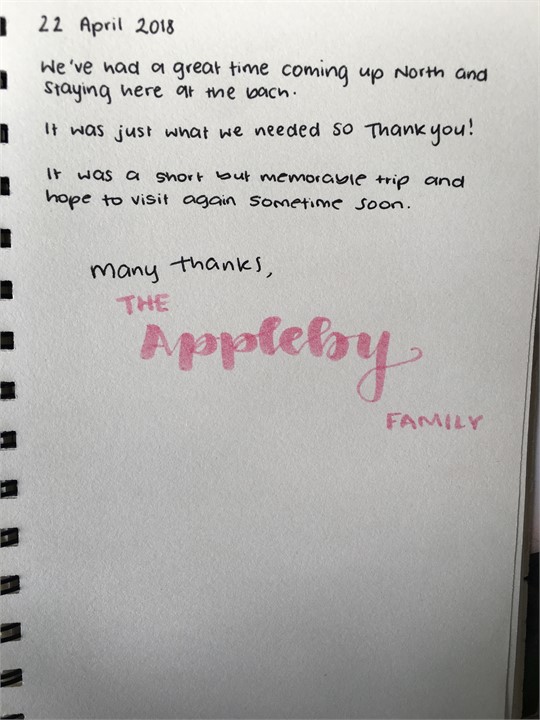 22 April 2018
We've had a great time coming up North and
staying here at the bach.
It was just what we needed so Thankyou!
It was a short but memorable trip and
hope to visit again sometime soon.
many thanks,
THE
Appleby
FAMILY